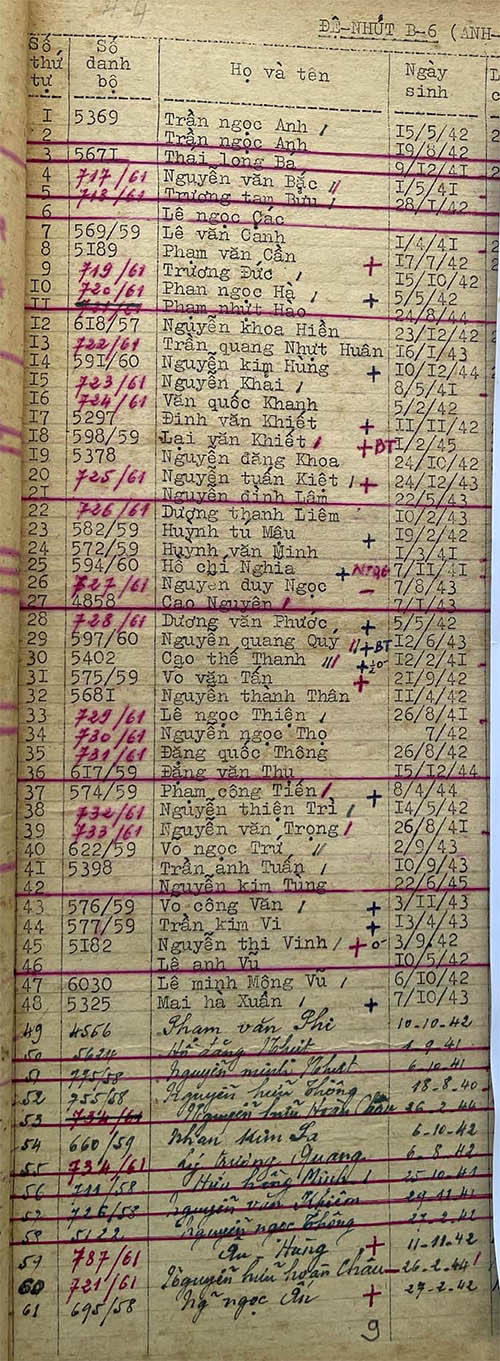 ĐỆ-NHỨT B-6 (ANH-
Số thứ tự Số danh bộ Họ và tên Ngày sinh
1 5369 Trần ngọc Anh 15/5/42
2 Trần ngọc Anh 19/8/42
3 5671 Thái long Ba 9/12/41
4 717/61 Nguyễn văn Bắc 1/5/41
5 718/61 Trương tam Bửu 28/1/42
6 Lê ngọc Các
7 569/59 Lê văn Cảnh 1/4/41
8 5189 Phạm văn Cần 17/7/42
9 719/61 Trương Đức 15/10/42
10 720/61 Phan ngọc Hà 5/5/42
11 Phạm nhựt Hảo 24/8/44
12 618/57 Nguyễn khoa Hiền 23/12/42
13 722/61 Trần quang Nhựt Huân 16/1/43
14 591/60 Nguyễn kim Hùng + 10/12/44
15 723/61 Nguyễn Khai 8/5/41
16 724/61 Văn quốc Khanh 5/2/42
17 5297 Đinh văn Khiết + 11/11/42
18 598/59 Lại văn Khiết +BT 1/2/45
19 5378 Nguyễn đăng Khoa 24/10/42
20 725/61 Nguyễn tuấn Kiệt + 24/12/43
21 Nguyễn đình Lâm 22/5/43
22 726/61 Dương thanh Liêm 10/2/43
23 582/59 Huỳnh tú Mâu + 19/2/42
24 572/59 Huỳnh văn Minh 1/3/41
25 594/60 Hồ chí Nghĩa + 7/11/41
26 727/61 Nguyễn duy Ngọc - 7/8/43
27 4858 Cao Nguyên 7/1/43
28 728/61 Dương văn Phước + 5/5/42
29 597/60 Nguyễn quang Quý +BT 12/6/43
30 5402 Cao thế Thanh + 12/2/41
31 575/59 Võ văn Tấn + 21/9/42
32 5681 Nguyễn thành Thân 11/4/42
33 729/61 Lê ngọc Thiện 26/8/41
34 730/61 Nguyễn ngọc Thọ 7/42
35 731/61 Đặng quốc Thông 26/8/42
36 617/59 Đặng văn Thu 15/12/44
37 574/59 Phạm công Tiến + 8/4/44
38 732/61 Nguyễn thiện Trì 14/5/42
39 733/61 Nguyễn văn Trọng 26/8/41
40 622/59 Võ ngọc Trứ 2/9/43
41 5398 Trần anh Tuấn 10/9/43
42 Nguyễn kim Tùng 22/6/45
43 576/59 Võ công Văn + 3/11/43
44 577/59 Trần kim Vi + 13/4/43
45 5182 Nguyễn thị Vinh + 3/9/42
46 Lê anh Vũ 10/5/42
47 6030 Lê minh Mộng Vũ 6/10/42
48 5325 Mai hà Xuân + 7/10/43
49 4566 Phạm văn Phi 10-10-42
50 Hồ đăng Nhựt 1-9-41
51 775/58 Nguyễn minh Nhựt 6-10-41
52 755/58 Nguyễn hữu Thông 18-8-40
53 734/61 Nguyễn hữu Hoàn Châu 26-2-44
54 660/59 Phan kim Sa 6-10-42
55 734/61 Lý trường Quang 6-8-42
56 711/58 Hữu hồng Minh 25-10-41
57 726/58 Nguyễn văn Khiêm 29-11-41
58 5122 Nguyễn ngọc Thông 17-2-41
59 787/61 Âu Hùng + 11-11-42
60 721/61 Nguyễn hữu hoàn Châu - 26-2-44
61 695/58 Ngũ ngọc Ân + 27-2-42
9